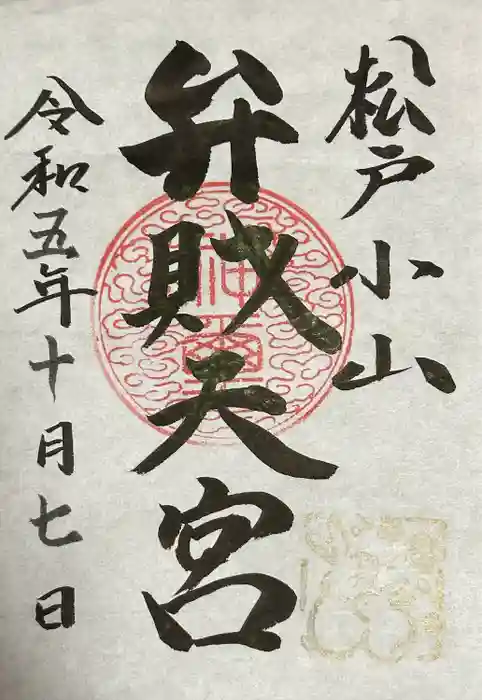 松戸小山
弁財天宮
令和五年十月七日
神璽